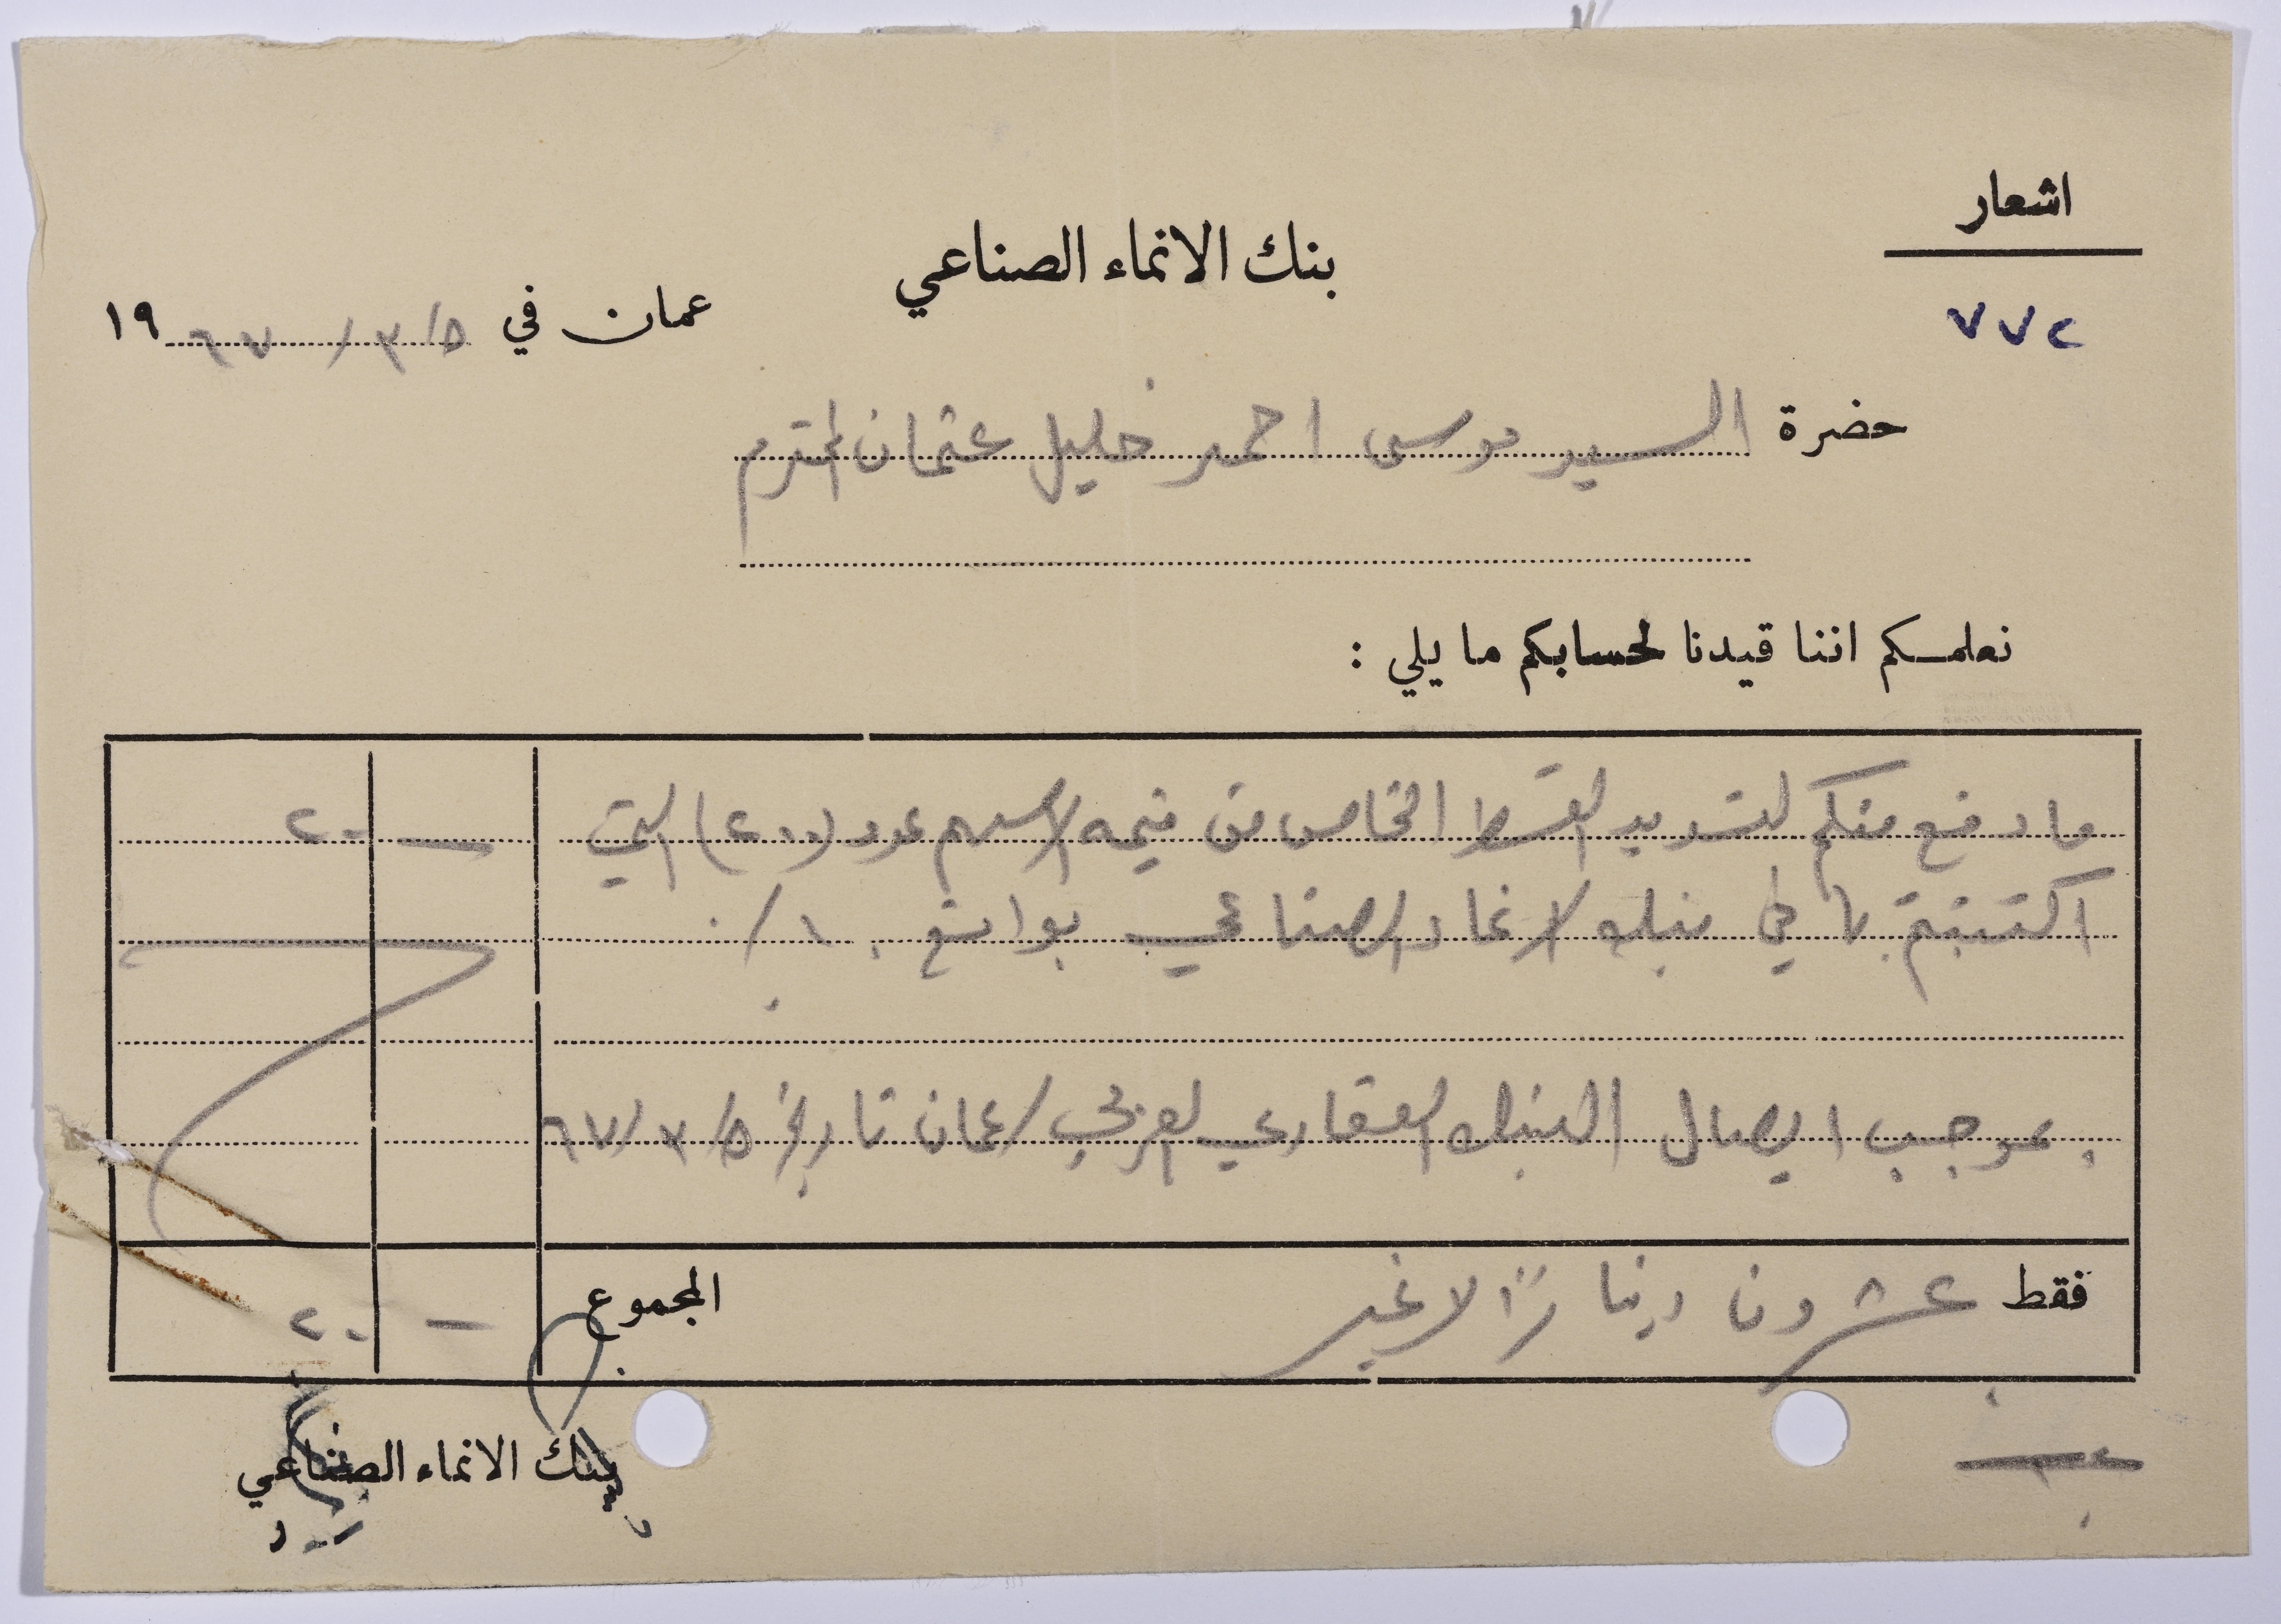 اشعار
بنك الانماء الصناعي
٧٧٢
عمان في ٥/٣/٦٧ ١٩
حضرة السيد موسى احمد خليل عثمان المحترم
نعلمكم اننا قيدنا لحسابكم ما يلي :
ما دفع منكم لتسديد القسط الخاص من قيمة الاسهم عدد (٢٠٠) التي — ٢٠
اكتتبتم بها في بنك الانماء الصناعي بواقع ١٠٪
بموجب ايصال البنك العقاري العربي / عمان تاريخ ٥/٣/٦٧
فقط عشرون دينارًا لا غير المجموع — ٢٠
بنك الانماء الصناعي